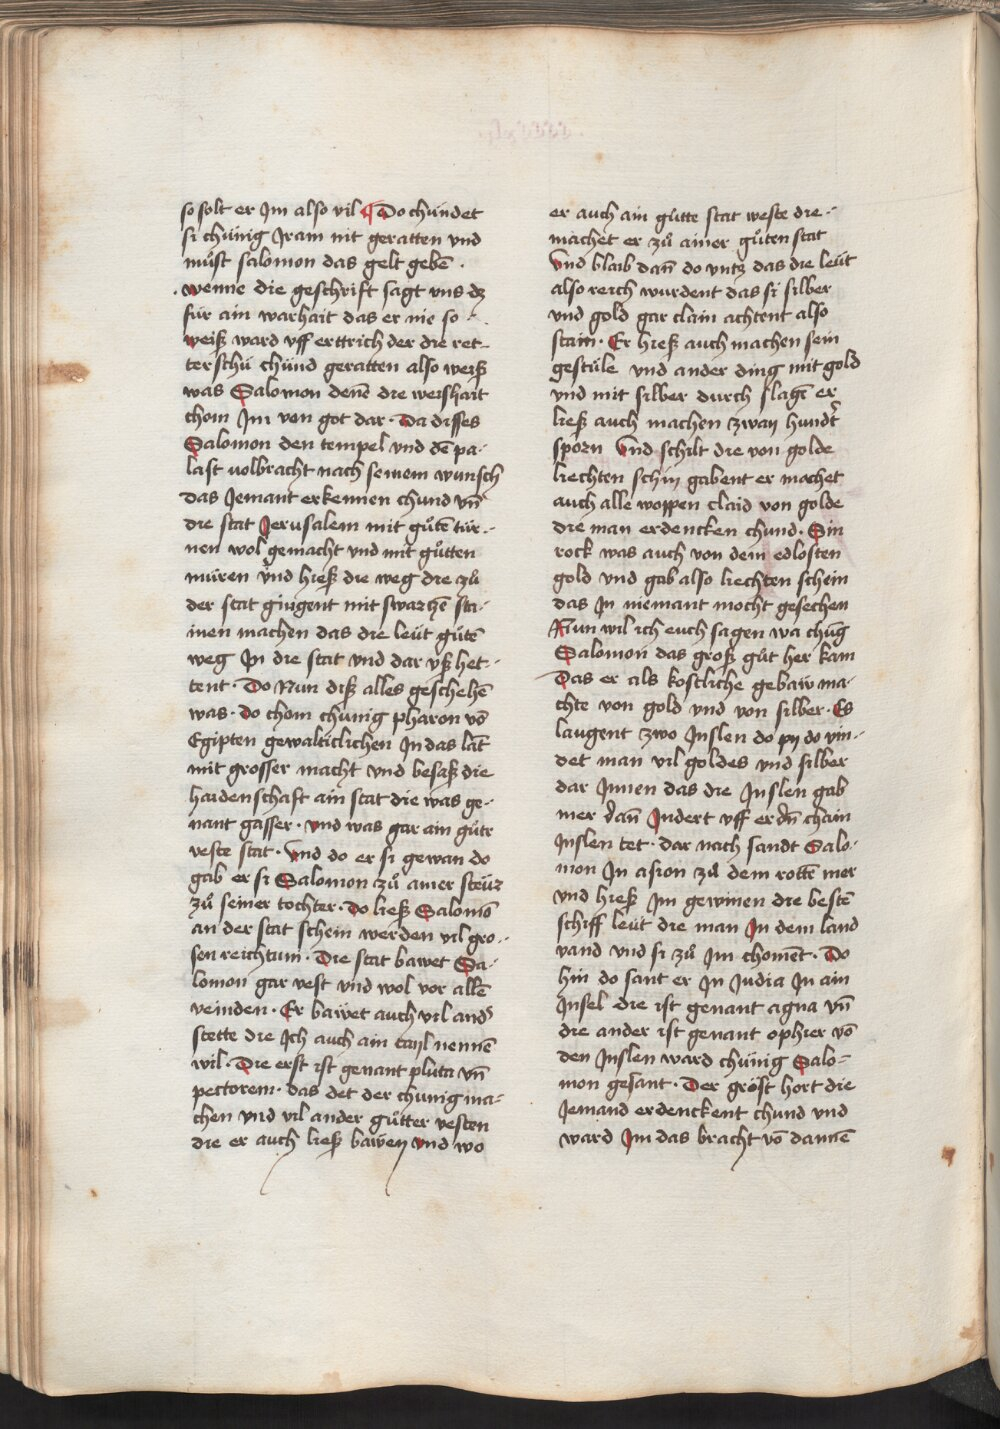 so solt er Im also vil Do chündet
si chünig Iram nit geratten vnd
müst salomon das gelt gebē .
. wenne die geschrift sagt vns dz
für ain warhait das er nie so
weiß ward vff erttrich der die ret
terschü chünd geratten also weiß
was Salomon denē die weishait
chom Im von got dar · Da disses
Salomon den tempel vnd dē pa-
last volbracht nach seinem wunsch
das Jemant erkennen chund vn̄
die stat Jerusalem mit gůtē tür
nen wol gemacht vnd mit gůtten
müren vnd hieß die weg die zů
der stat giengent mit swartzē sta-
inen machen das die leüt gůtē
weg In die stat vnd dar vß het
tent · Do Nun diß alles geschehē
was · do chom chünig pharon vō
Egipten gewalticlichen In das lāt
mit grosser macht vnd besaß die
haidenschaft ain stat die was ge-
nant gasser · vnd was gar ain gůte
veste stat · vnd do er si gewan do
gab er si Salomon zů ainer steür
zů seiner tochter · do ließ Salomō
an der stat schein werden vil gro
sen reichtum · Die stat bawet Sa-
lomon gar vest vnd wol vor allē
veinden · Er bawet auch vil and
stette die Ich auch ain tayl nennē
wil · Die erst ist genant pluta vn̄
pectorem · das det der chünig ma-
chen vnd vil ander gůtter vesten
die er auch ließ bawen vnd wo
er auch ain gůtte stat weste die
machet er zů ainer gůten stat
vnd blaib dan̄ do vntz das die leüt
also reich wurdent das si silber
vnd gold gar clain achtent also
stain · Er hieß auch machen sein
gestüle vnd ander ding mit gold
vnd mit silber durch slagē er
ließ auch machen zway hundt
sporn vnd schilt die von golde
liechten schin gabent er machet
auch alle woppen claid von golde
die man erdencken chund · Sin
rock was auch von dem edlosten
gold vnd gab also liechten schein
das In niemant mocht gesechen
Nun wil ich euch sagen wa chüg
Salomon das groß gůt her kam
Das er als kostliche gebaw ma-
chte von gold vnd von silber · Es
laugent zwo Inslen do py do vin
det man vil goldes vnd silber
dar Innen das die Inslen gab
mer dan̄ Indert vff erdn̄ chain
Inslen tet · dar nach sandt Salo-
mon In asion zů dem rottē mer
vnd hieß Im gewinen die bestē
schiff leüt die man In dem land
vand vnd si zů Im chomēt · Do
hin do sant er In India In ain
Insel die ist genant agna vn̄
die ander ist genant ophier vō
den Inslen ward chünig Salo-
mon gesant · Der gröst hort die
Jemand erdenckent chund vnd
ward Im das bracht vō dannē